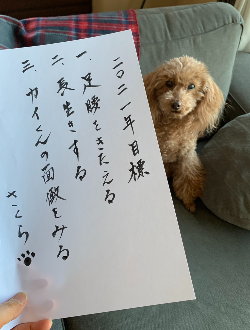 二〇二一年目標
一、足腰をきたえる
二、長生きする
三、カイくんの面倒をみる
さくら